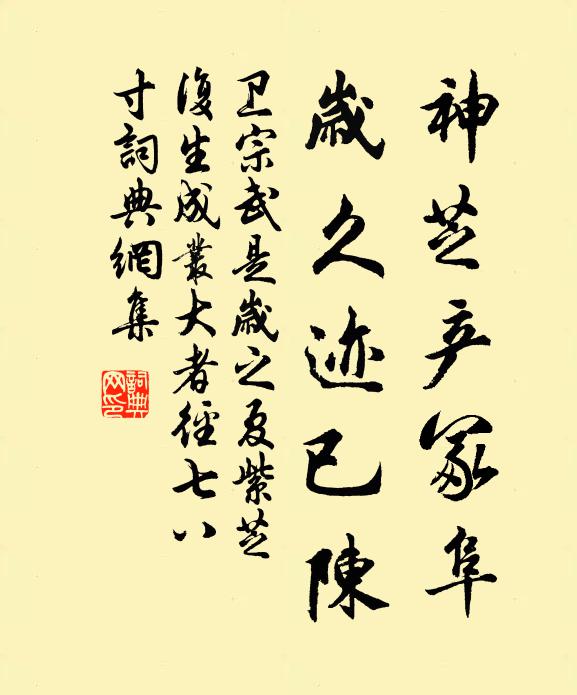 神芝产冢阜
歲久迹已陳
卫宗武是歲之夏紫芝
復生成叢大者徑七八
寸詞典網集
詞典
网印